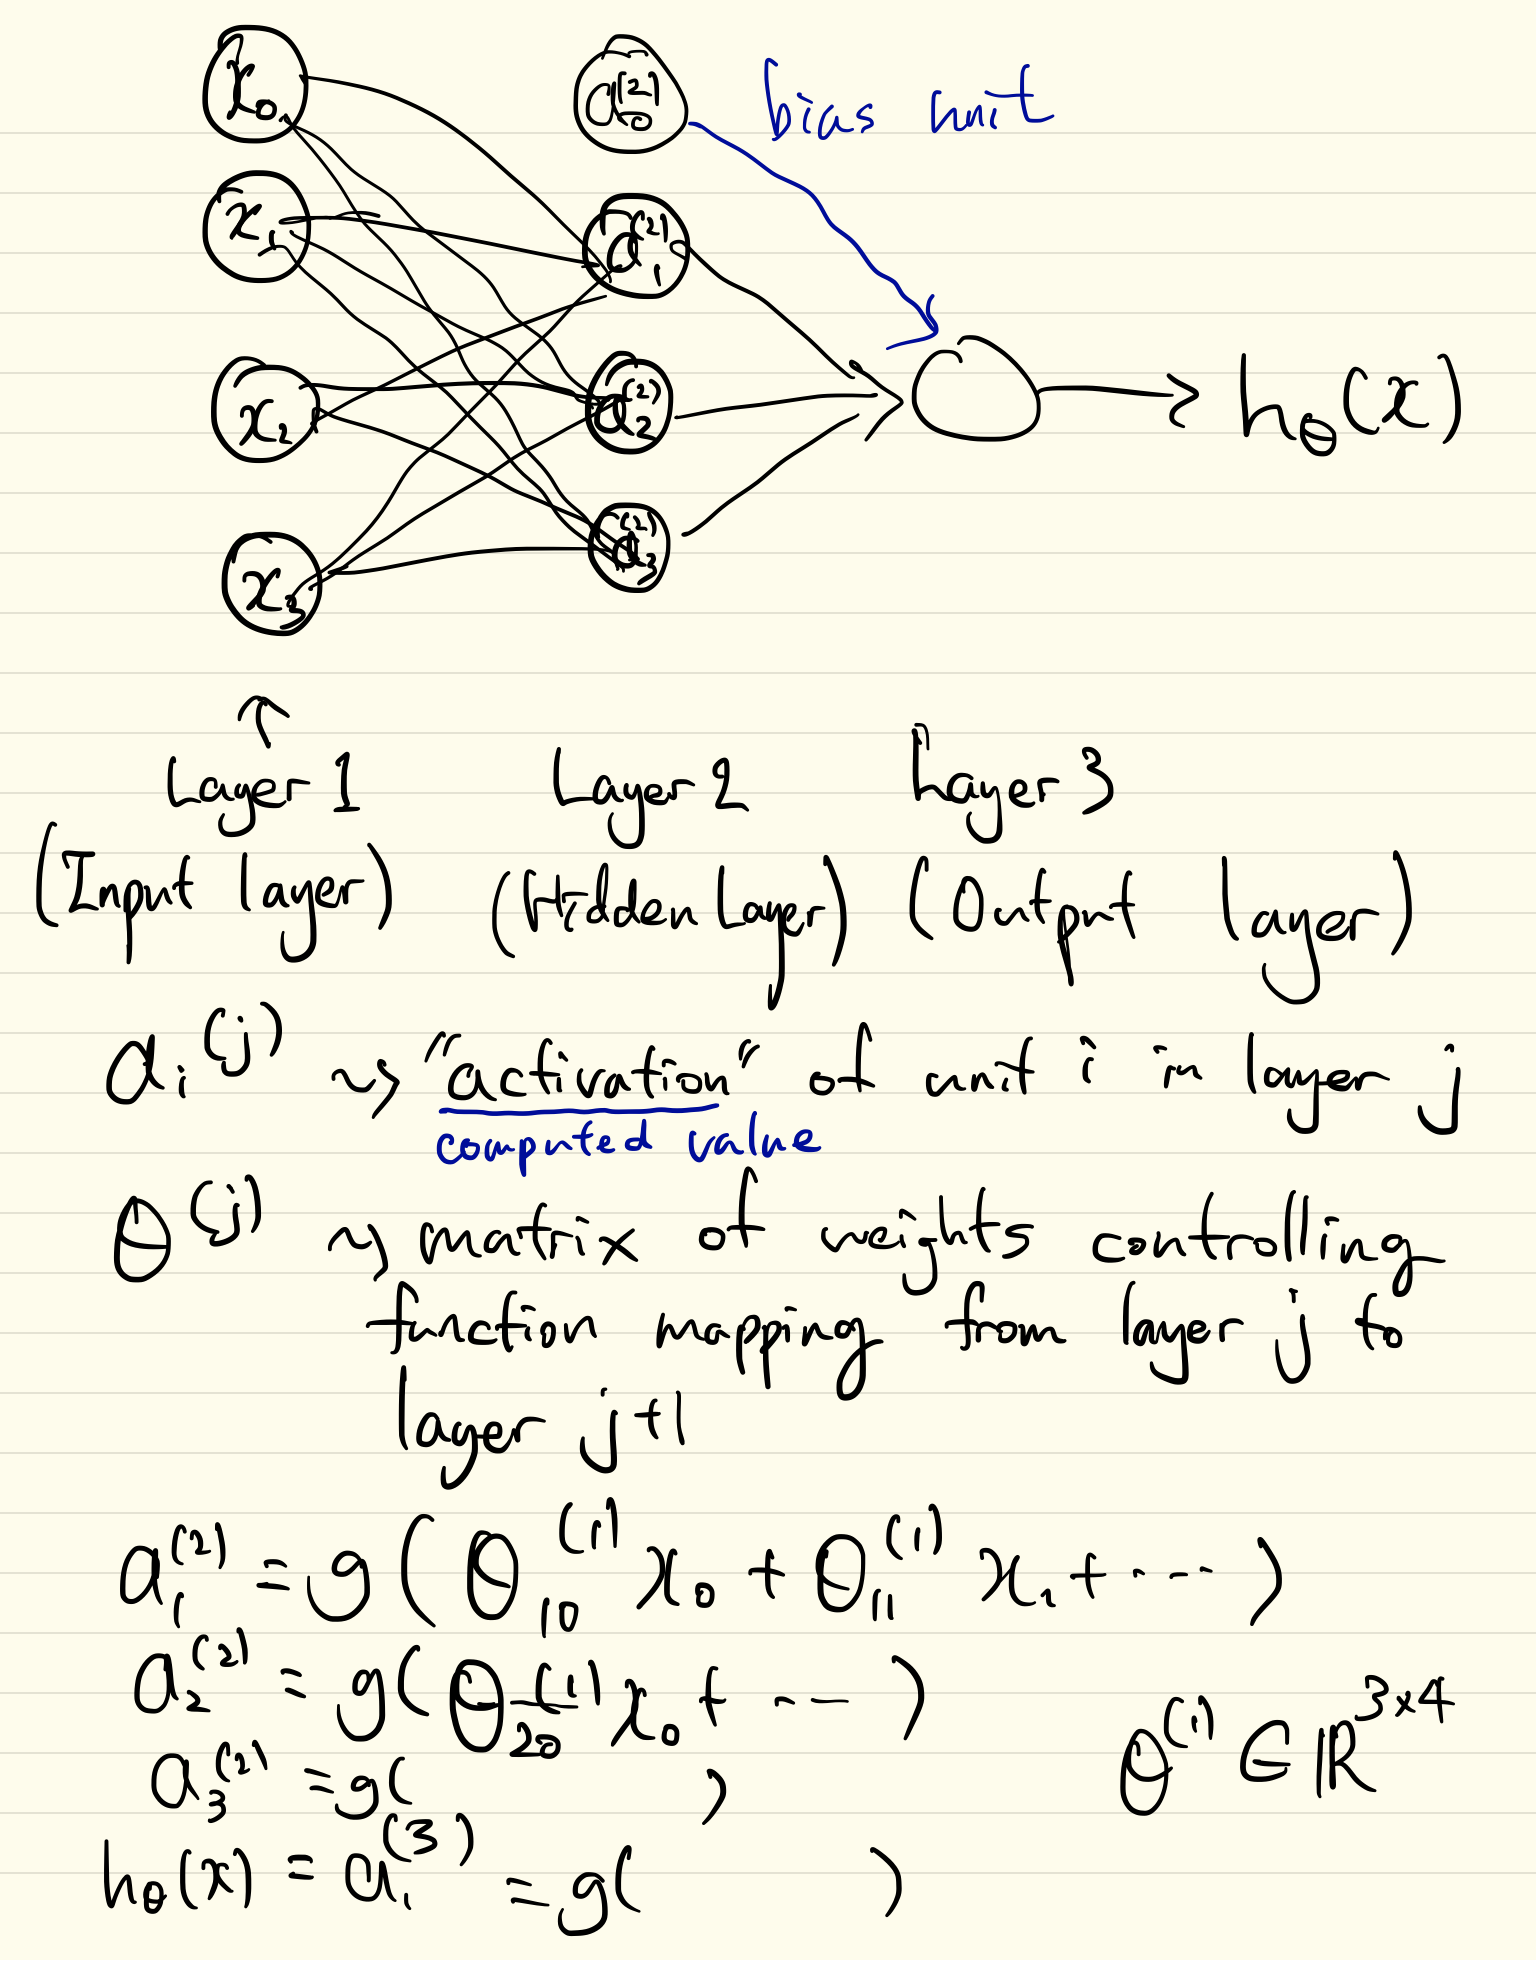 x₀ a₀⁽²⁾ bias unit
x₁ a₁⁽²⁾
x₂ a₂⁽²⁾ hθ(x)
x₃ a₃⁽²⁾
Layer 1 Layer 2 Layer 3
(Input layer) (Hidden Layer) (Output layer)
aᵢ⁽ʲ⁾ ⇝ "activation" of unit i in layer j
computed value
θ⁽ʲ⁾ ⇝ matrix of weights controlling
function mapping from layer j to
layer j+1
a₁⁽²⁾ = g(θ₁₀⁽¹⁾x₀ + θ₁₁⁽¹⁾x₁ + ···)
a₂⁽²⁾ = g(θ₂₀⁽¹⁾x₀ + ···)
θ⁽¹⁾ ∈ ℝ³ˣ⁴
a₃⁽²⁾ = g( )
hθ(x) = a₁⁽³⁾ = g( )